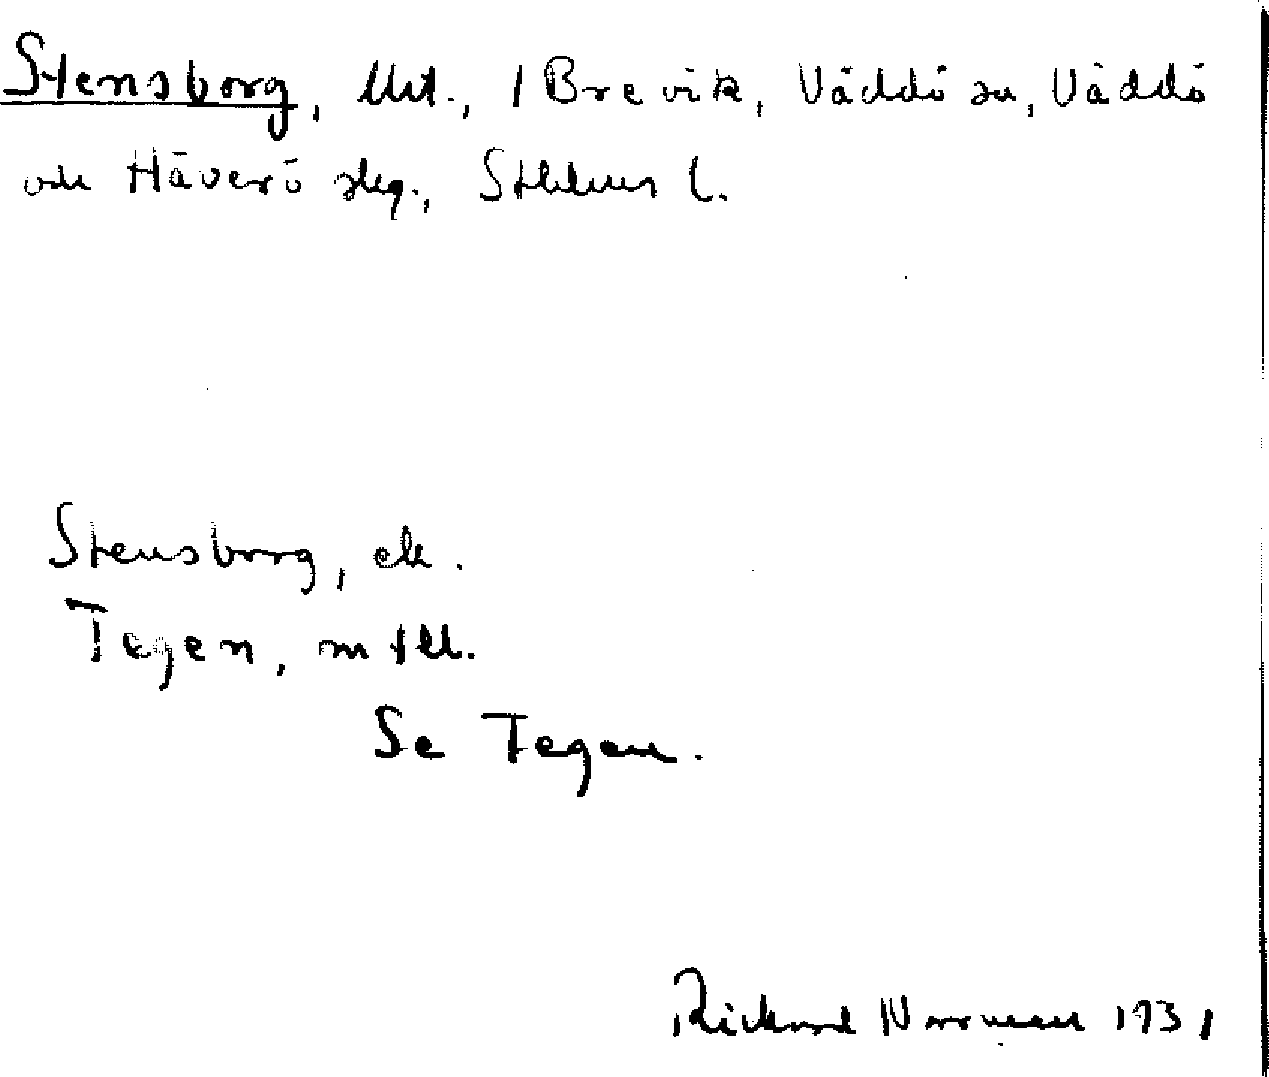 Stensborg, lht., 1 Brevik, Väddö sn, Väddö
och Häverö skg., Sthlms l.
Stensborg, ek.
Tegen, mtll.
Se Tegen.
Rickard Norrman 1931